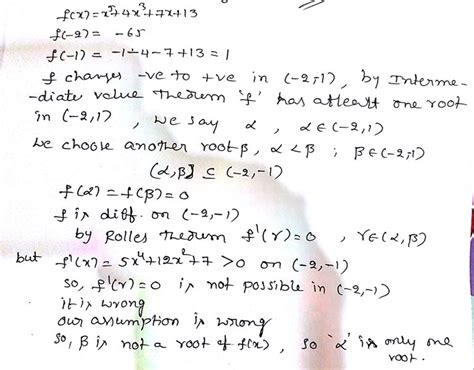 f(x) = x⁵+4x³+7x+13
f(-2) = -65
f(-1) = -1-4-7+13 = 1
f changes -ve to +ve in (-2,-1), by Interme-
-diate value theorem 'f' has atleast one root
in (-2,1) , we say α , α∈(-2,1)
we choose another root β, α<β ; β∈(-2,-1)
(α,β] ⊆ (-2,-1)
f(α) = f(β) = 0
f is diff. on (-2,-1)
by Rolles theorem f'(γ) = 0 , γ∈(α,β)
but f'(x) = 5x⁴+12x²+7 >0 on (-2,-1)
so, f'(γ) = 0 is not possible in (-2,-1)
it is wrong
our assumption is wrong
so, β is not a root of f(x) , so 'α' is only one
root.